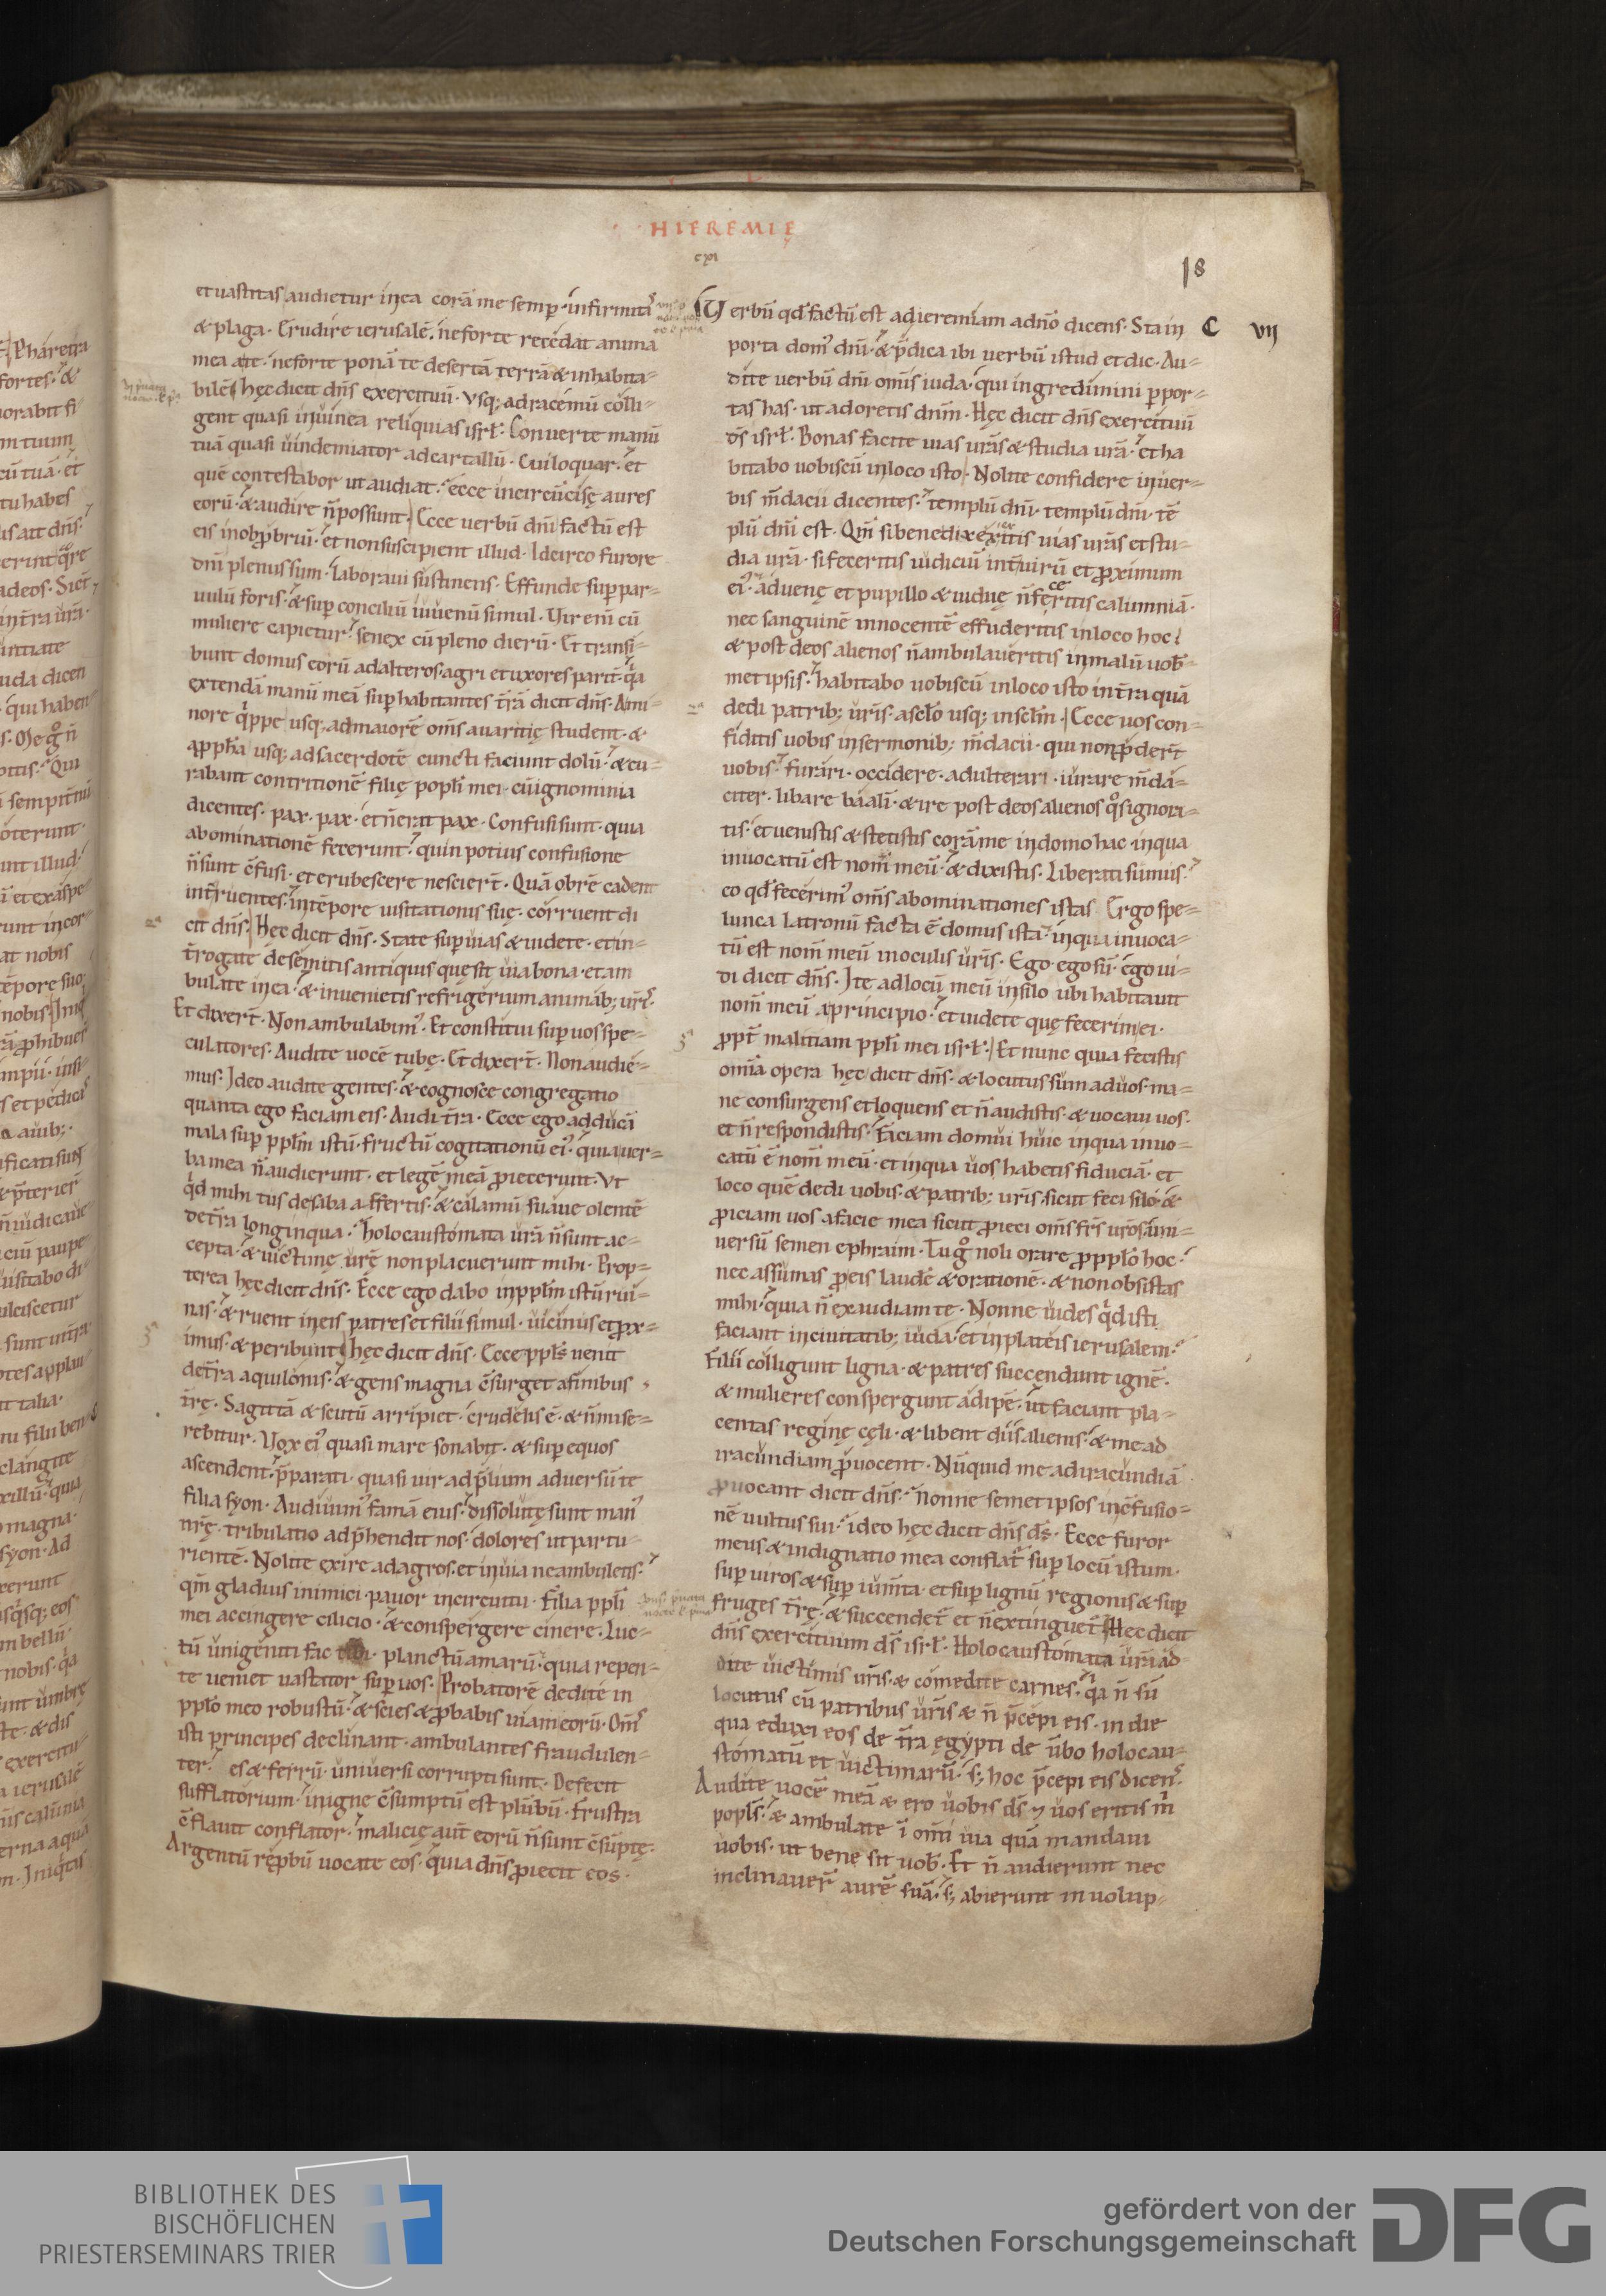 HIEREMIĘ
cxi
18
et uastitas audietur in ea corā me semp. infirmitas
& plaga. Erudire ierusalē. ne forte recedat anima
mea a te. ne forte ponā te desertā terrā & inhabita-
bilē hęc dicit dns exercituū. Vsq; ad racemū colli-
gent quasi in uinea reliquias isrl. Conuerte manū
tuā quasi uindemiator ad cartallū. Cui loquar. et
quē contestabor ut audiat. ecce incircūcisę aures
eorū. & audire n̄ possunt. Ecce uerbū dn̄i factū est
eis in obp̄briū. et non suscipient illud. Idcirco furore
dn̄i plenus sum. laboraui sustinens. Effunde sup par-
uulū foris. & sup conciliū iuuenū simul. Vir eni cū
muliere capietur. senex cū pleno dierū. Et transi-
bunt domus eorū ad alteros. agri et uxores parit. q̄a
extendā manū meā sup habitantes trā dicit dn̄s. A mi-
nore q̄ppe usq; ad maiorē om̄s auaritię student. &
a p̄pha usq; ad sacerdotē cuncti faciunt dolū. & cu-
rabant contritionē filię popli mei. cū ignominia
dicentes. pax. pax. et n̄ erat pax. Confusi sunt. quia
abominationē fecerunt. quin potius confusione
n̄ sunt c̄fusi. et erubescere nesciert. Quā obrē cadent
int̄ ruentes. in tēpore uisitationis suę. corruent di
cit dns. Hęc dicit dn̄s. State sup uias & uidete. et in-
t̄rogate de semitis antiquis quę sit uia bona. et am
bulate in ea. & inuenietis refrigerium animab; uris.
Et dixert. Non ambulabim'. Et constitui sup uos spe-
culatores. Audite uocē tubę. Et dixert. Non audie-
mus. Ideo audite gentes. & cognosce congregatio
quanta ego faciam eis. Audi t̄ra. Ecce ego adducā
mala sup pplm istū. fructū cogitationū ei'. quia uer-
ba mea n̄ audierunt. et legē meā p̄iecerunt. Vt
q̄d mihi tus de saba affertis. & calamū suaue olentē
de t̄ra longinqua. holocaustomata ur̄a n̄ sunt ac-
cepta. & uictimę urę non placuerunt mihi. Prop-
terea hęc dicit dns. Ecce ego dabo in pplm istū rui-
nas. & ruent in eis patres et filii simul. uicinus et p̄x-
imus. & peribunt hęc dicit dn̄s. Ecce ppls uenit
de t̄ra aquilonis. & gens magna c̄surget a finibus
t̄rę. Sagittā & scutū arripiet. crudelis ē. & n̄ mise-
rebitur. Vox ei' quasi mare sonabit. & sup equos
ascendent. p̄parati. quasi uir ad p̄lium aduersū te
filia syon. Audiuim' famā eius. dissolutę sunt man'
nrę. tribulatio adp̄hendit nos. dolores ut partu-
rientē. Nolite exire ad agros. et in uia ne ambuletis.
qm̄ gladius inimici. pauor in circuitu. Filia ppli
mei accingere cilicio. & conspergere cinere. Luc-
tū unigeniti fac tibi. planctū amarū. quia repen-
te ueniet uastator sup uos. Probatorē dedi te in
pplo meo robustū. & scies & p̄babis uiam eorū. Om̄s
isti principes declinant. ambulantes fraudulen-
ter. es & ferrū. uniuersi corrupti sunt. Defecit
sufflatorium. in igne c̄sumptū est plūbū. frustra
c̄flauit conflator. malicię aut̄ eorū n̄ sunt c̄sūptę.
Argentū rep̄bū uocate eos. quia dn̄s p̄iecit eos.
Verbū qd factū est ad ieremiam a dn̄o dicens. Sta in C vii
porta dom' dn̄i. & p̄dica ibi uerbū istud et dic. Au-
dite uerbū dn̄i om̄is iuda. qui ingredimini p por-
tas has. ut adoretis dnm̄. Hęc dicit dn̄s exercituū
ds̄ isrl. Bonas facite uias ur̄as & studia ur̄a. et ha
bitabo uobiscū in loco isto. Nolite confidere in uer-
bis m̄dacii dicentes. templū dn̄i. templū dn̄i. tē
plū dn̄i est. Qm̄ si benedixeritis uias ur̄as et stu-
dia ur̄a. si feceritis iudiciū int̄ uirū et p̄ximum
ei'. aduenę et pupillo & uiduę n̄ feceritis calumniā.
nec sanguinē innocentē effuderitis in loco hoc.
& post deos alienos n̄ ambulaueritis in malū uob
met ipsis. habitabo uobiscū in loco isto in t̄ra quā
dedi patrib; ur̄is. a sclo usq; in sclm. Ecce uos con-
fiditis uobis in sermonib; m̄dacii. qui non p̄dert
uobis. furari. occidere. adulterari. iurare m̄da-
citer. libare baali. & ire post deos alienos q̄s ignora-
tis. et uenistis & stetistis corā me in domo hac in qua
inuocatū est nom̄ meū. & dixistis. Liberati sumus.
eo qd fecerim' om̄s abominationes istas Ergo spe-
lunca latronū facta ē domus ista. in qua inuoca-
tū est nom̄ meū in oculis ur̄is. Ego ego sū. ego ui-
di dicit dn̄s. Ite ad locū meū in silo ubi habitauit
nom̄ meū a principio. et uidete quę fecerim ei.
p̄pt malitiam ppli mei isrl. Et nunc quia fecistis
om̄ia opera hęc dicit dn̄s. & locutus sum ad uos. ma-
ne consurgens et loquens et n̄ audistis. & uocaui uos.
et n̄ respondistis. Faciam domui huic in qua inuo-
catū ē nom̄ meū. et in qua uos habetis fiduciā. et
loco quē dedi uobis. & patrib; ur̄is. sicut feci silo. &
p̄iciam uos a facie mea sicut p̄ieci om̄s fr̄s ur̄os uni-
uersū semen ephraim. Tu g° noli orare p̄ pplo hoc.
nec assumas p̄ eis laudē & orationē. & non obsistas
mihi. quia n̄ exaudiam te. Nonne uides q̄d isti
faciant in ciuitatib; iuda. et in plateis ierusalem.
Filii colligunt ligna. & patres succendunt ignē.
& mulieres conspergunt adipē. ut faciant pla-
centas reginę cęli. & libent diis alienis. & me ad
iracundiam p̄uocent. Nūquid me ad iracundiā
p̄uocant dicit dn̄s. nonne semet ipsos in c̄fusio-
nē uultus sui. ideo hęc dicit dn̄s ds̄. Ecce furor
meus & indignatio mea conflat̄ sup locū istum.
sup uiros & sup ium̄ta. et sup lignū regionis & sup
fruges t̄rę. & succendet̄ et n̄ extinguet̄ Hec dicit
dn̄s exercituum ds̄ isrl. Holocaustomata ur̄a ad-
dite uictimis ur̄is. & comedite carnes. q̄a n̄ sū
locutus cū patribus ur̄is & n̄ p̄cepi eis. in die
qua eduxi eos de t̄ra ęgypti de u̅bo holocau-
stomatū et uictimarū. s; hoc p̄cepi eis dicens.
Audite uocē meā & ero uobis ds̄ 7 uos eritis m̄
popls. & ambulate ī om̄i uia quā mandaui
uobis. ut bene sit uob. Et n̄ audierunt nec
inclinauer̄ aurē suā. s; abierunt in uolup-
BIBLIOTHEK DES
BISCHÖFLICHEN
PRIESTERSEMINARS TRIER
gefördert von der
Deutschen Forschungsgemeinschaft
DFG